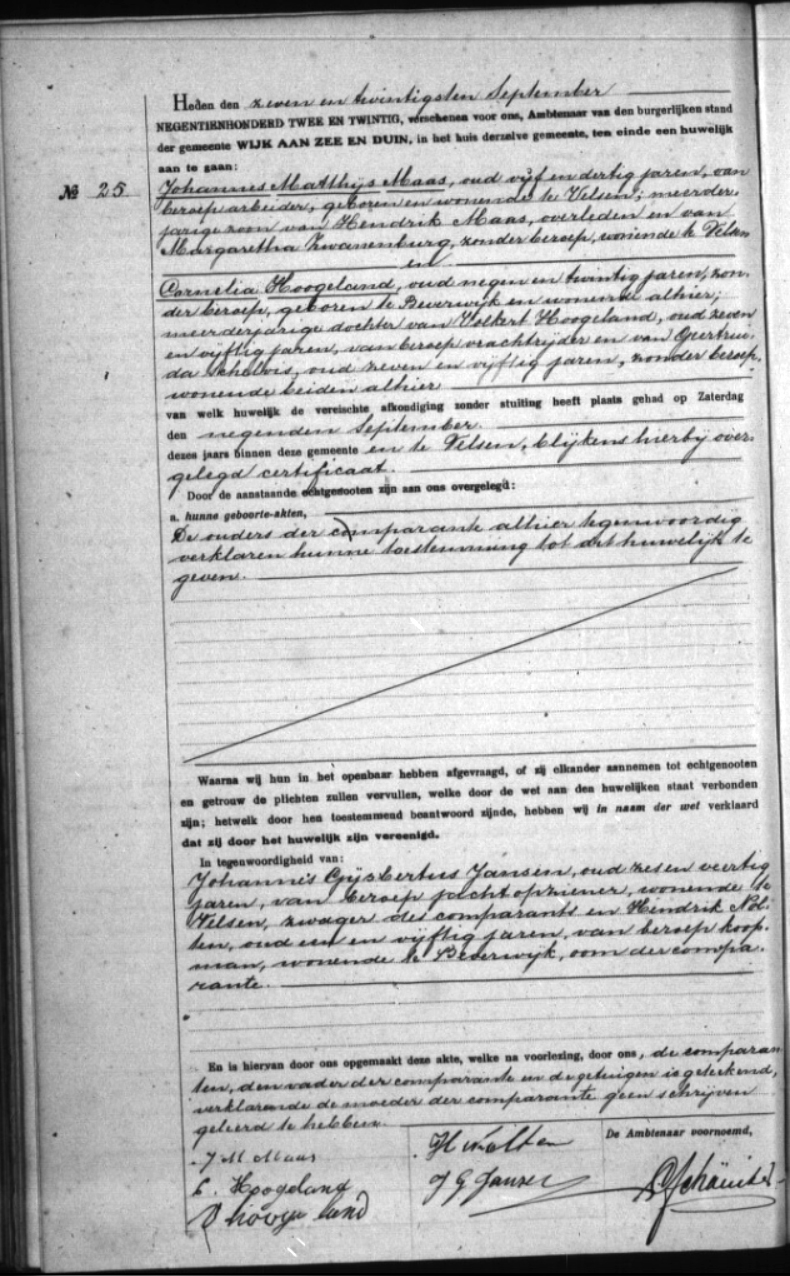 Heden den zeven en twintigsten September
NEGENTIENHONDERD TWEE EN TWINTIG, verschenen voor ons, Ambtenaar van den burgerlijken stand
der gemeente WIJK AAN ZEE EN DUIN, in het huis derzelve gemeente, ten einde een huwelijk
aan te gaan:
№ 25
Johannes Matthijs Maas, oud vijf en dertig jaren, van
beroep arbeider, geboren en wonende te Velsen; meerder-
jarige zoon van Hendrik Maas, overleden en van
Margaretha Zwanenburg, zonder beroep, wonende te Velsen
en
Cornelia Hoogeland, oud negen en twintig jaren, zon-
der beroep, geboren te Beverwijk en wonende alhier;
meerderjarige dochter van Volkert Hoogeland, oud zeven
en vijftig jaren, van beroep vrachtrijder en van Geertrui-
da Schelvis, oud zeven en vijftig jaren, zonder beroep,
wonende beiden alhier
van welk huwelijk de vereischte afkondiging zonder stuiting heeft plaats gehad op Zaterdag
den negenden September.
dezes jaars binnen deze gemeente en te Velsen, blijkens hierbij over-
gelegd certificaat.
Door de aanstaande echtgenooten zijn aan ons overgelegd:
a. hunne geboorte-akten,
De ouders der comparante alhier tegenwoordig
verklaren hunne toestemming tot dit huwelijk te
geven.
Waarna wij hun in het openbaar hebben afgevraagd, of zij elkander aannemen tot echtgenooten
en getrouw de plichten zullen vervullen, welke door de wet aan den huwelijken staat verbonden
zijn; hetwelk door hen toestemmend beantwoord zijnde, hebben wij in naam der wet verklaard
dat zij door het huwelijk zijn vereenigd.
In tegenwoordigheid van:
Johannes Gijsbertus Jansen, oud zes en veertig
jaren, van beroep jachtopziener, wonende te
Velsen, zwager des comparants en Hendrik Nol-
ten, oud een en vijftig jaren, van beroep koop-
man, wonende te Beverwijk, oom der compa-
rante.
En is hiervan door ons opgemaakt deze akte, welke na voorlezing, door ons, de comparan
ten, den vader der comparante en de getuigen is geteekend,
verklarende de moeder der comparante geen schrijven
geleerd te hebben.
De Ambtenaar voornoemd,
J M Maas
H Nolten
C. Hoogeland
J G Janzen
V hoogeland